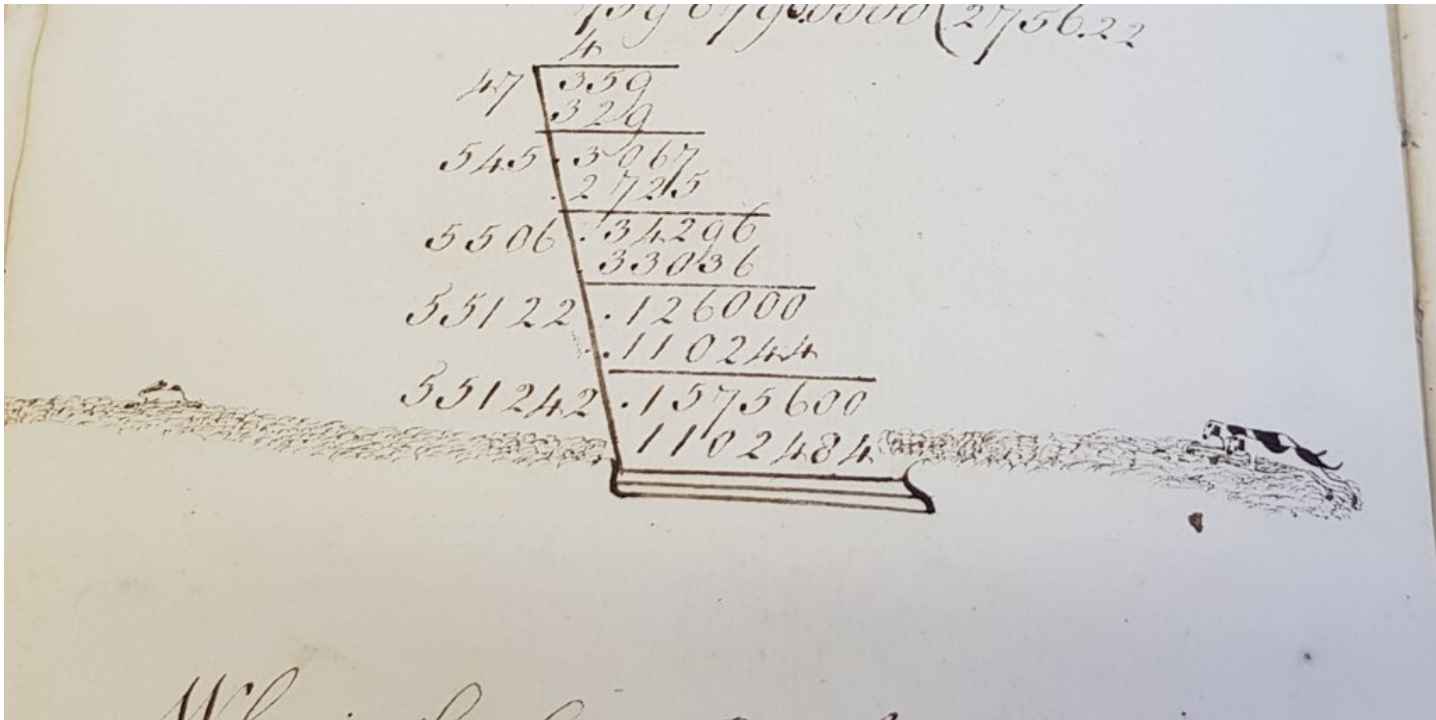 7596796.0000(2756.22
4
47 359
329
545 .3067
.2725
5506 .34296
.33036
55122 .126000
.110244
551242 .1575600
1102484